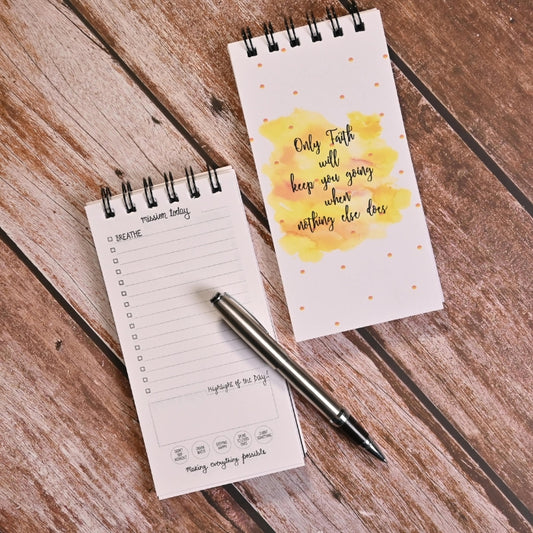 mission today
BREATHE
Highlight of the Day!
making everything possible
Only Faith
will
keep you going
when
nothing else does